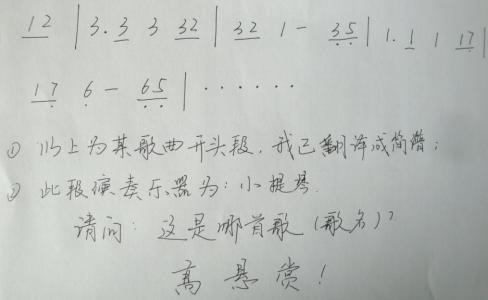 12 | 3. 3 3 32 | 32 1 - 35 | 1. 1 1 17 |
17 6 - 65 | ······
① 以上为某歌曲开头段，我已翻译成简谱；
② 此段演奏乐器为：小提琴.
请问：这是哪首歌（歌名）？
高悬赏！